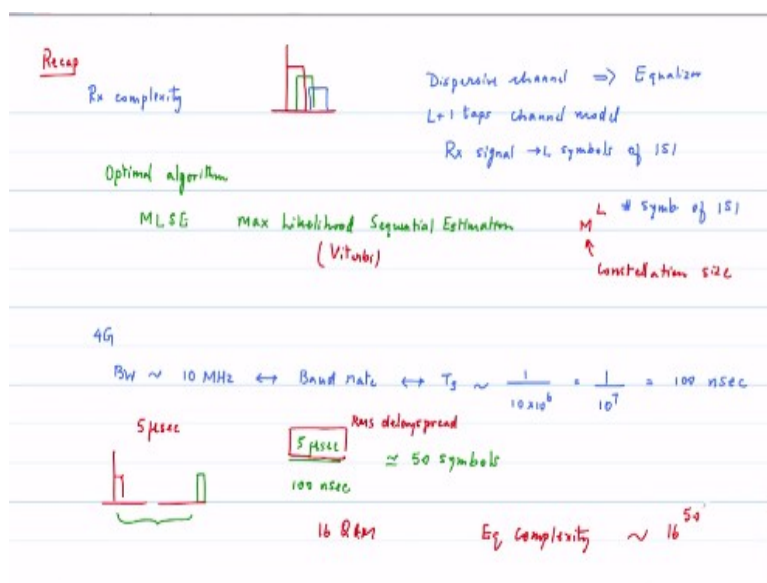 Recap
Rx complexity
Dispersive channel ⇒ Equalizer
L+1 taps channel model
Rx signal → L symbols of ISI
Optimal algorithm
MLSE max Likelihood Sequential Estimation
(Viterbi)
M^L # symb of ISI
↑
Constellation size
4G
BW ~ 10 MHz ↔ Baud rate ↔ Ts ~ 1/10x10^6 = 1/10^7 = 100 nsec
5 μsec
RMS delay spread
5 μsec / 100 nsec ≃ 50 symbols
16 QAM Eq Complexity ~ 16^50